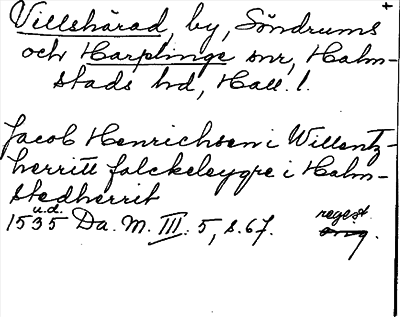 Villshärad, by, Söndrums +
och Harplinge snr, Halm-
stads hd, Hall. l.
Jacob Henrichsen i Willentz-
herritt falckeleygre i Halm-
stedherrit
u.d. regest
1535 Da. M. III: 5, s. 67. orig.